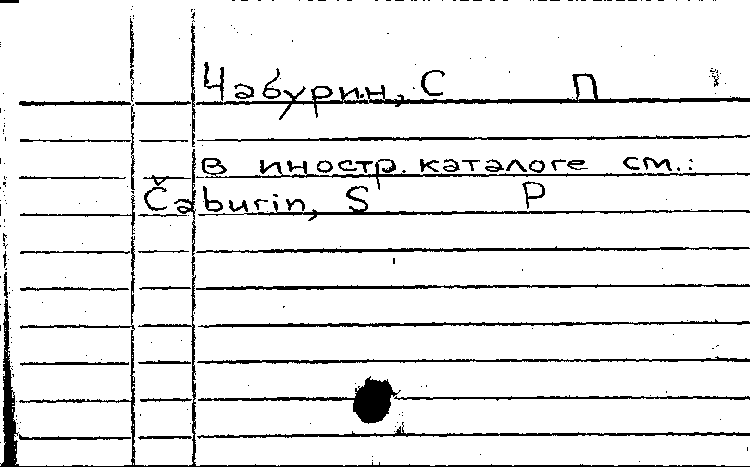 Чабурин, С П
в иностр. каталоге см.:
Čaburin, S P